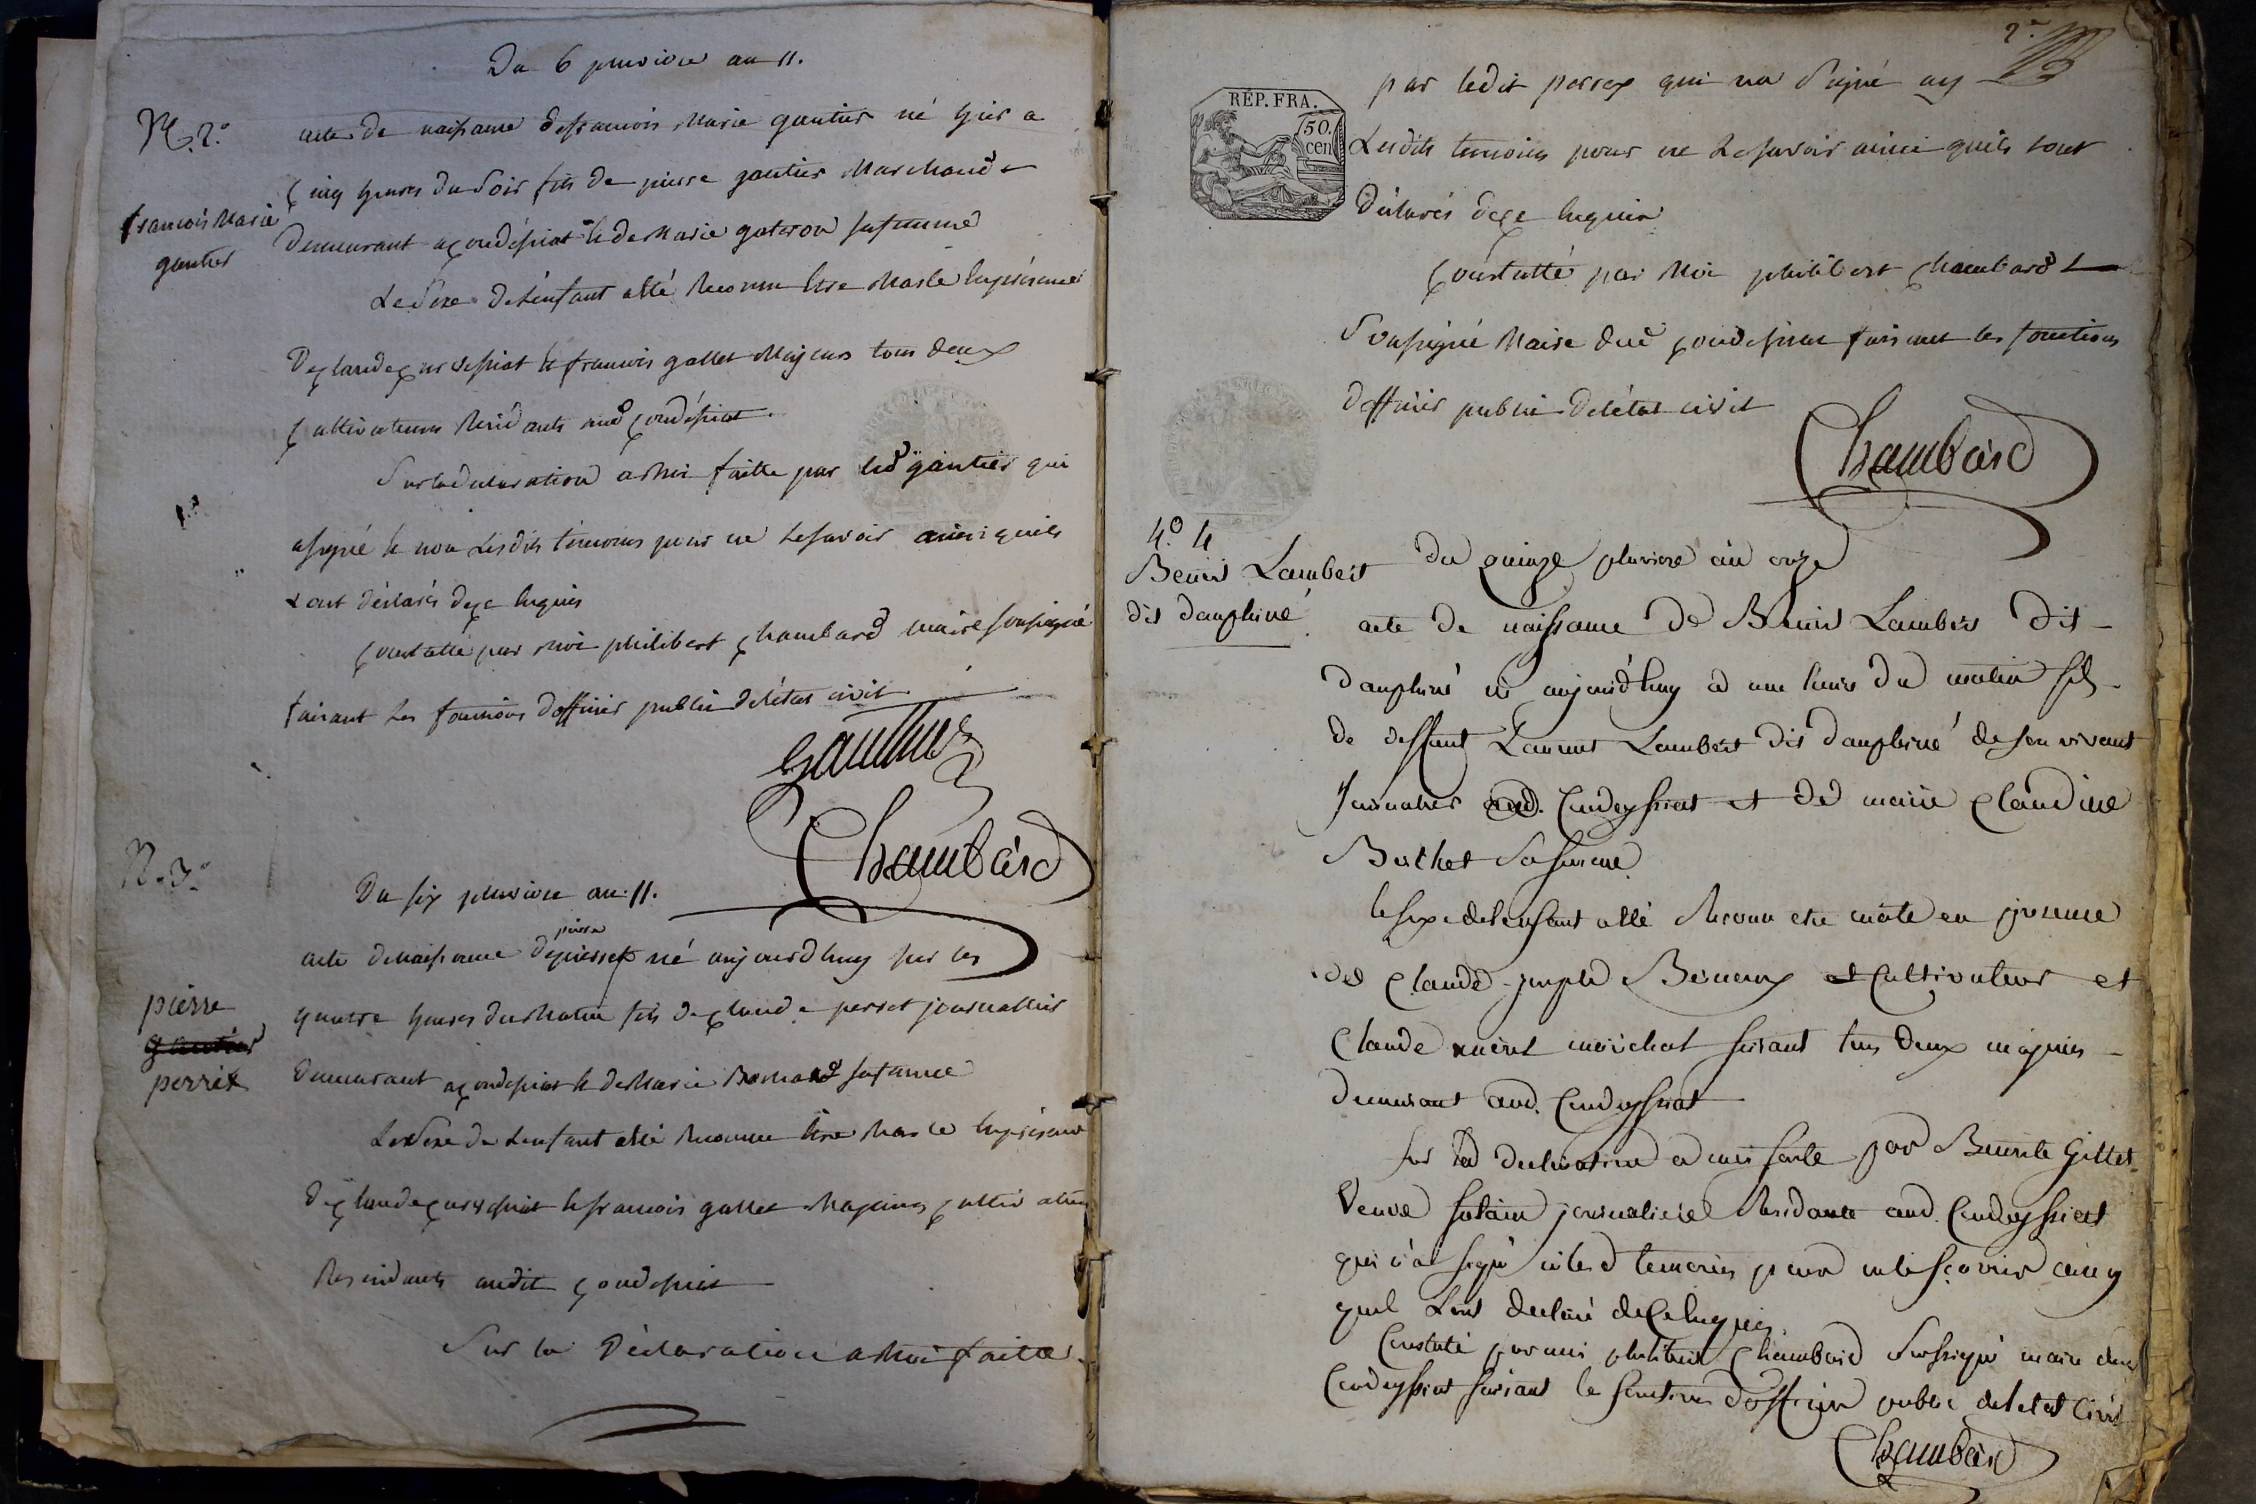 Du 6 pluviose an 11.
N. 2.°
acte de naissance de francois Marie gautier né hier a
cinq heures du Soir fils de pierre gautier Marchand
francois Marie
gautier
demeurant a condésiat & de Marie gateron safemme
Le Sexe de Lenfant a été Reconnu Etre Masle En présence
De claude curvesiat & francois gallet Majeurs tous deux
cultivateurs Residants aud condésiat.
Sur la declaration a Moi faitte par led gautier qui
a signé & non Lesdits témoins pour ne Le savoir ainsi quils
Lont déclarés de ce Enquis
Constatté par Moi philibert chambard maire soussigné
faisant Les fonctions dofficier public de létat civil
Gauthier
Chambard
N. 3.°
Du six pluviose an 11.
pierre
acte de naissance de perret né aujourdhuy sur les
quatre heures du Matin fils de claude perret journallier
pierre
gautier
perret
demeurant a condésiat & de Marie safemme
Le Sexe de Lenfant a été Reconnu Etre Masle En présence
de claude curvesiat & francois gallet Majeurs cultivateurs
Residants audit condesiat
Sur la Déclaration a Moi faitte
2.e
par ledit perret qui na Signé ny
RÉP. FRA.
50.
cen
Lesdits temoins pour ne Le savoir ainsi quils Lont
Déclarés de ce Enquis
Constatté par Moi philibert chambard
Soussigné Maire dud condesiat faisant les fonctions
dofficier public de létat civil
Chambard
4.° 4
Benoit Lambert
dit dauphiné
du quinze pluviose an onze
acte de naissance de Benoit Lambert dit
dauphiné né aujourd'huy a une heure du matin fils
de deffunt Laurent Lambert dit dauphiné de son vivant
Journalier aud. Condeyssiat et de marie Claudine
Berthet sa femme
le sexe de lenfant a été Reconnu etre mâle en presence
de Claude joseph et Cultivateur et
Claude marichal tous deux majeurs
demeurant aud. Condeyssiat
sur la declaration a moi faite par Benoite Gillet
Veuve journaliere Residante aud. Condeyssiat
qui n'a signé ni lesd temoins pour ne le sçavoir ainsy
quil Lont declaré de Ce Enquis
Constaté par moi philibert Chambard Soussigné maire dud
Condeyssiat faisant les fonctions dofficier public de letat Civil
Chambard